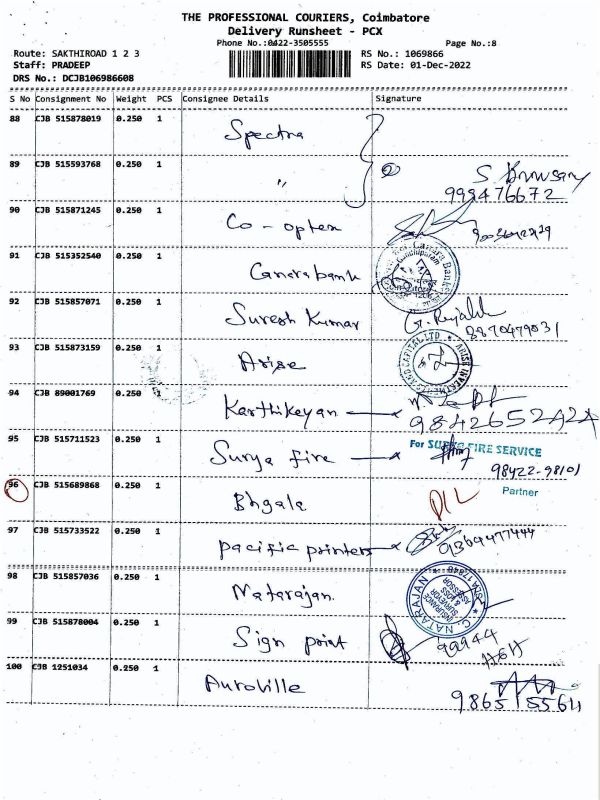 THE PROFESSIONAL COURIERS, Coimbatore
Delivery Runsheet - PCX
Phone No.:0422-3505555 Page No.:8
Route: SAKTHIROAD 1 2 3 RS No.: 1069866
Staff: PRADEEP RS Date: 01-Dec-2022
DRS No.: DCJB106986608
S No Consignment No Weight PCS Consignee Details Signature
88 CJB 515878019 0.250 1 Spectra
89 CJB 515593768 0.250 1 " S.
999476672
90 CJB 515871245 0.250 1 Co-optex
91 CJB 515352540 0.250 1 Canara bank
92 CJB 515857071 0.250 1 Suresh Kumar
8870479031
93 CJB 515873159 0.250 1 Arise
ARISE INVESTMENT AND CAPITAL LTD.
94 CJB 89001769 0.250 1 Karthikeyan
9842652424
95 CJB 515711523 0.250 1 Surya fire For SURYA FIRE SERVICE
98422-98101
Partner
96 CJB 515689868 0.250 1 Bhgala D/L
97 CJB 515733522 0.250 1 pacific printers
9369477444
98 CJB 515857036 0.250 1 Natarajan.
C. NATARAJAN
INSURANCE
SURVEYOR
& LOSS
ASSESSOR
99 CJB 515878004 0.250 1 Sign point
99944
100 CJB 1251034 0.250 1 Auroville
9865155611